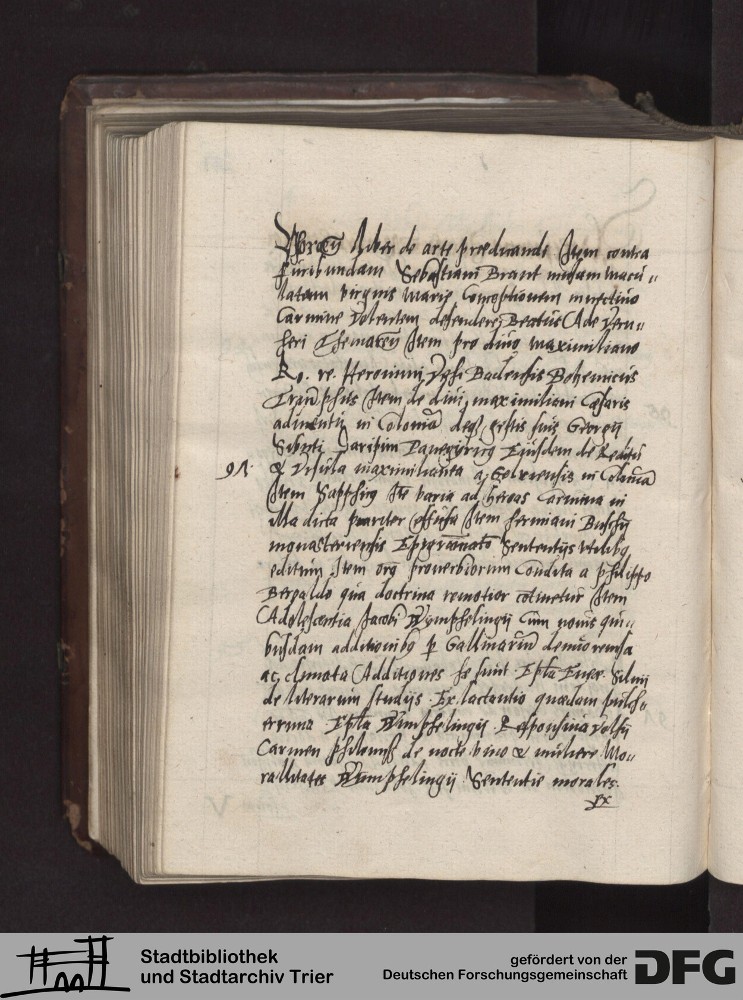 liber de arte prædicandi Item contra
furibundam Sebastiani Brant nusam macu„
latam virginis Marie Conceptionem invectivo
Carmine Volentem defendere Beatus Ade Vern„
heri Themaren Item pro divo maximiliano
Ro. re. Hieronimi Baldensis Bohemicus
Triũphus Item de divi maximiliani Cæsaris
adventu in Coloniã deq3 gestis suis Georgij
Sibuti Daripini Panegyricus Eiusdem de Reditu
91. & Ursula maximiliani a Gelriensis in Coloniã
Item varia ad heroas Carmina in
pariter Item hermani Buschij
monasteriensis Epigrammata Sententijs
editum Item prouerbiorum Condita a philippo
Beroaldo qua doctrina remotior cõtinetur Item
Adolescentia Jacobi Wymphelingij Cum novis qui„
busdam additionibq p Gallinariũ denuo reuisa
ac elimata Additiones he sunt Epl̃a Enee Siluij
de literarum studijs Ex lactantio quædam pulch„
errima Epl̃a Wimphelingij Responsiva Volsij
Carmen philomusi de nocte vino & muliere Mo„
ralitates Wimphelingij Sententie morales
ex
Stadtbibliothek
und Stadtarchiv Trier
gefördert von der
Deutschen Forschungsgemeinschaft
DFG